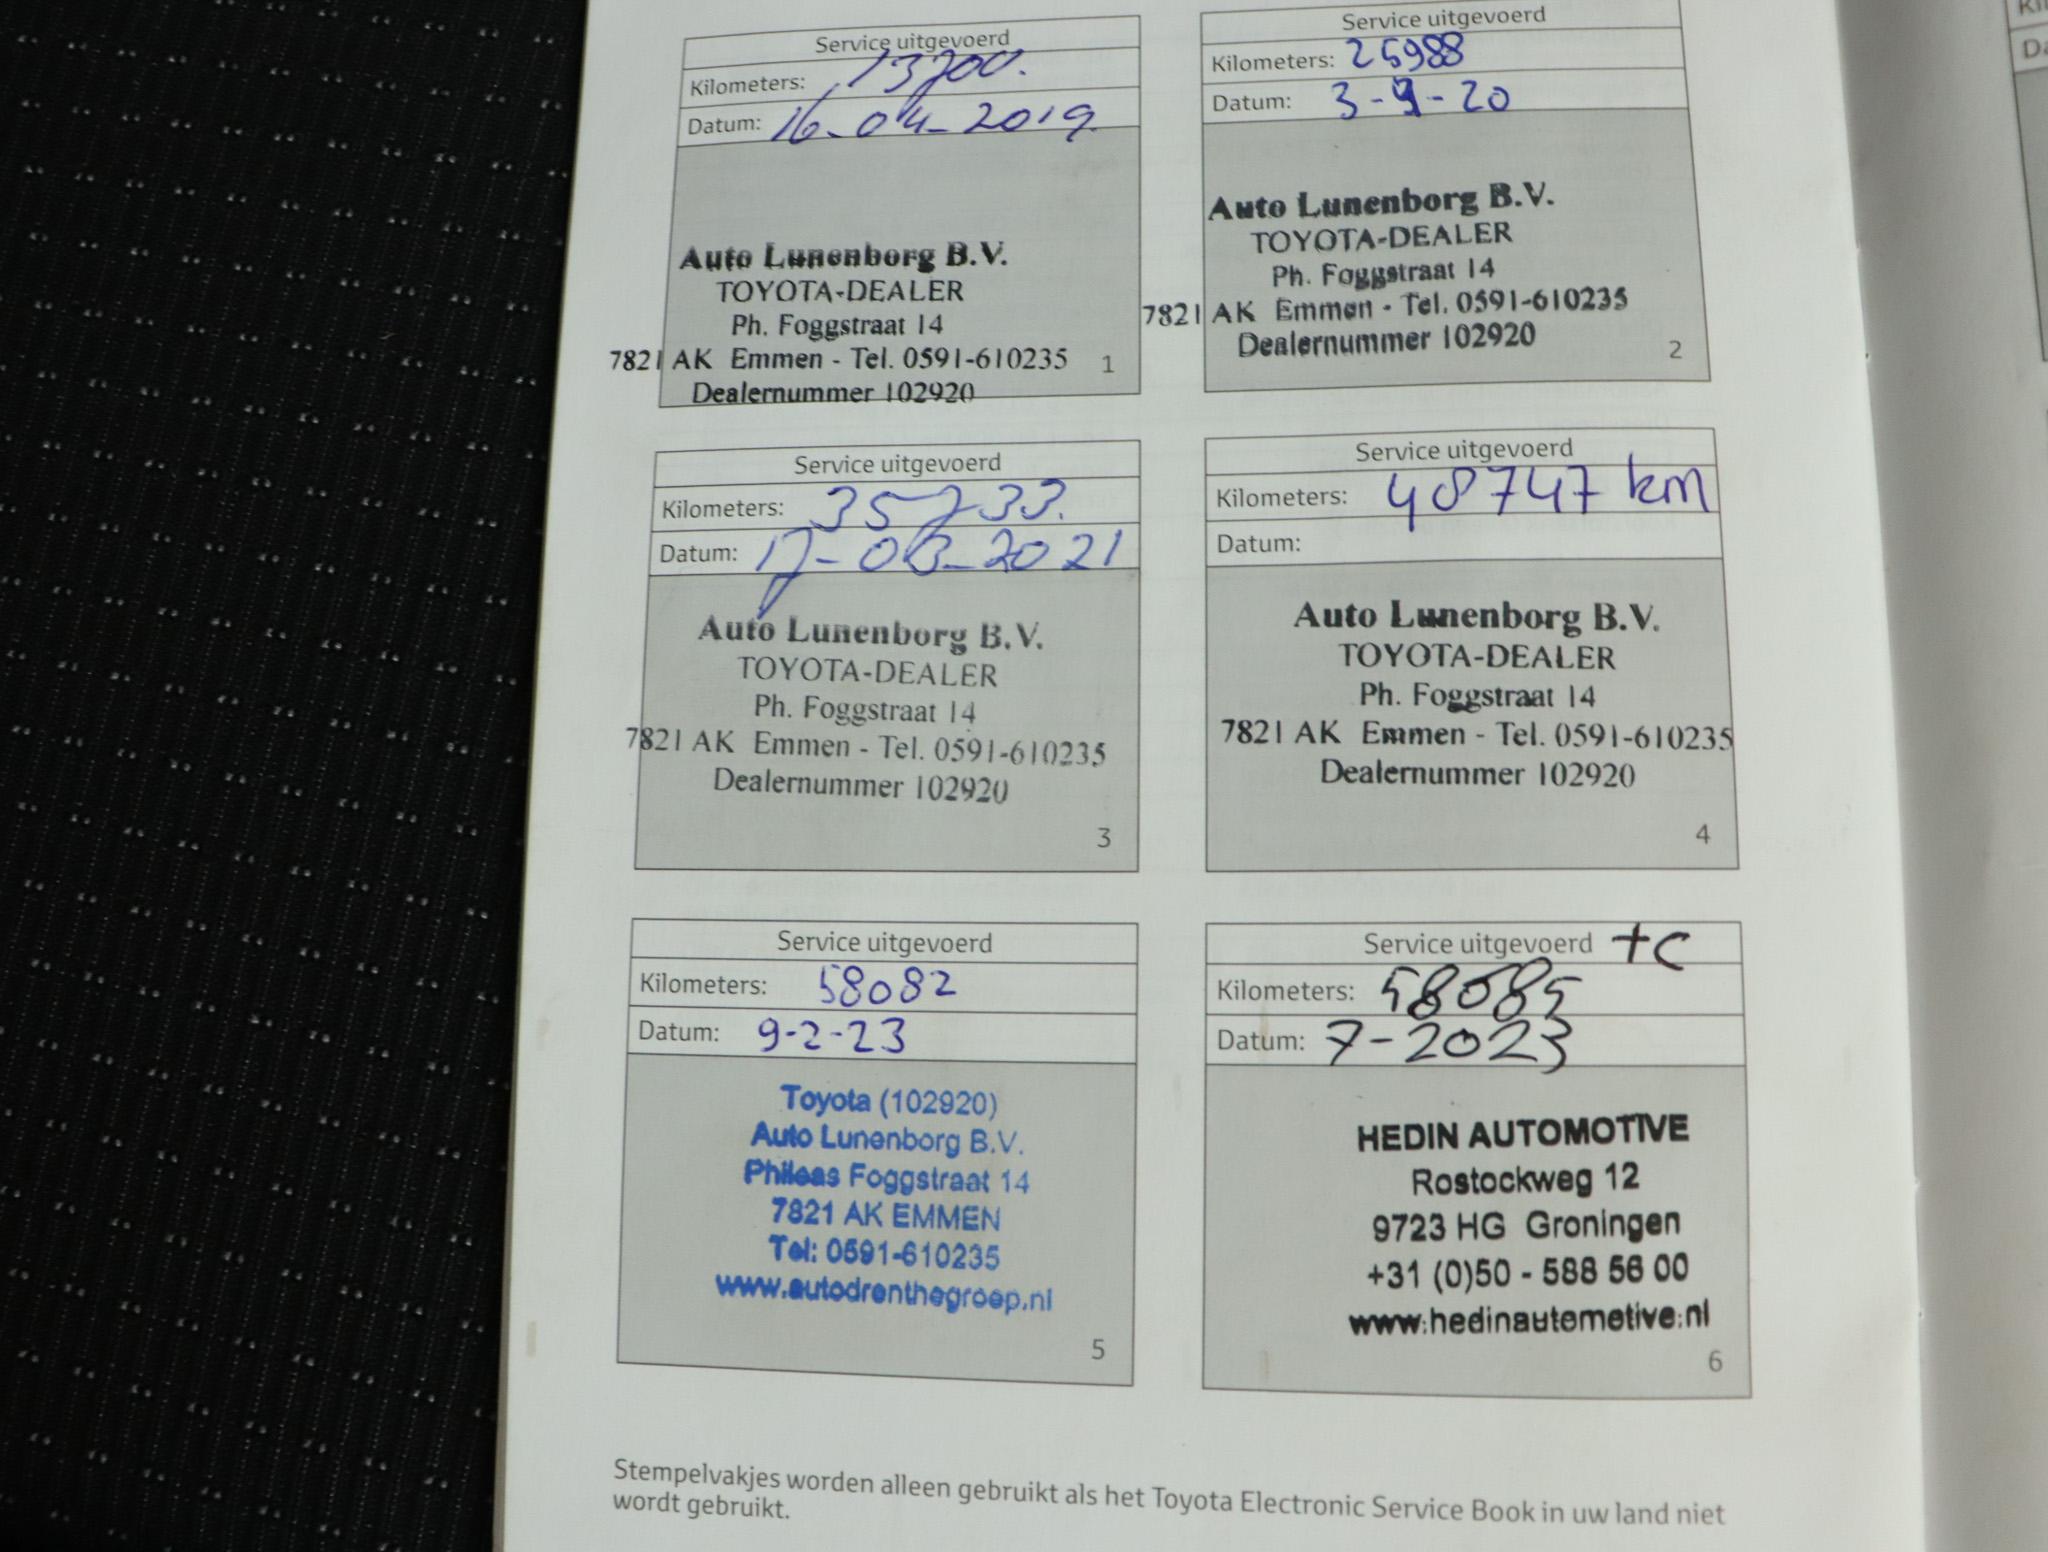 Service uitgevoerd
Kilometers: 13700.
Datum: 16-04-2019
Auto Lunenborg B.V.
TOYOTA-DEALER
Ph. Foggstraat 14
7821 AK Emmen - Tel. 0591-610235
Dealernummer 102920
1
Service uitgevoerd
Kilometers: 25988
Datum: 3-9-20
Auto Lunenborg B.V.
TOYOTA-DEALER
Ph. Foggstraat 14
7821 AK Emmen - Tel. 0591-610235
Dealernummer 102920
2
Service uitgevoerd
Kilometers: 35733.
Datum:
Auto Lunenborg B.V.
TOYOTA-DEALER
Ph. Foggstraat 14
7821 AK Emmen - Tel. 0591-610235
Dealernummer 102920
3
Service uitgevoerd
Kilometers: 48747 km
Datum:
Auto Lunenborg B.V.
TOYOTA-DEALER
Ph. Foggstraat 14
7821 AK Emmen - Tel. 0591-610235
Dealernummer 102920
4
Service uitgevoerd
Kilometers: 58082
Datum: 9-2-23
Toyota (102920)
Auto Lunenborg B.V.
Phileas Foggstraat 14
7821 AK EMMEN
Tel: 0591-610235
www.autodrenthegroep.nl
5
Service uitgevoerd +c
Kilometers: 58085
Datum: 7-2023
HEDIN AUTOMOTIVE
Rostockweg 12
9723 HG Groningen
+31 (0)50 - 588 56 00
www.hedinautomotive.nl
6
Stempelvakjes worden alleen gebruikt als het Toyota Electronic Service Book in uw land niet
wordt gebruikt.